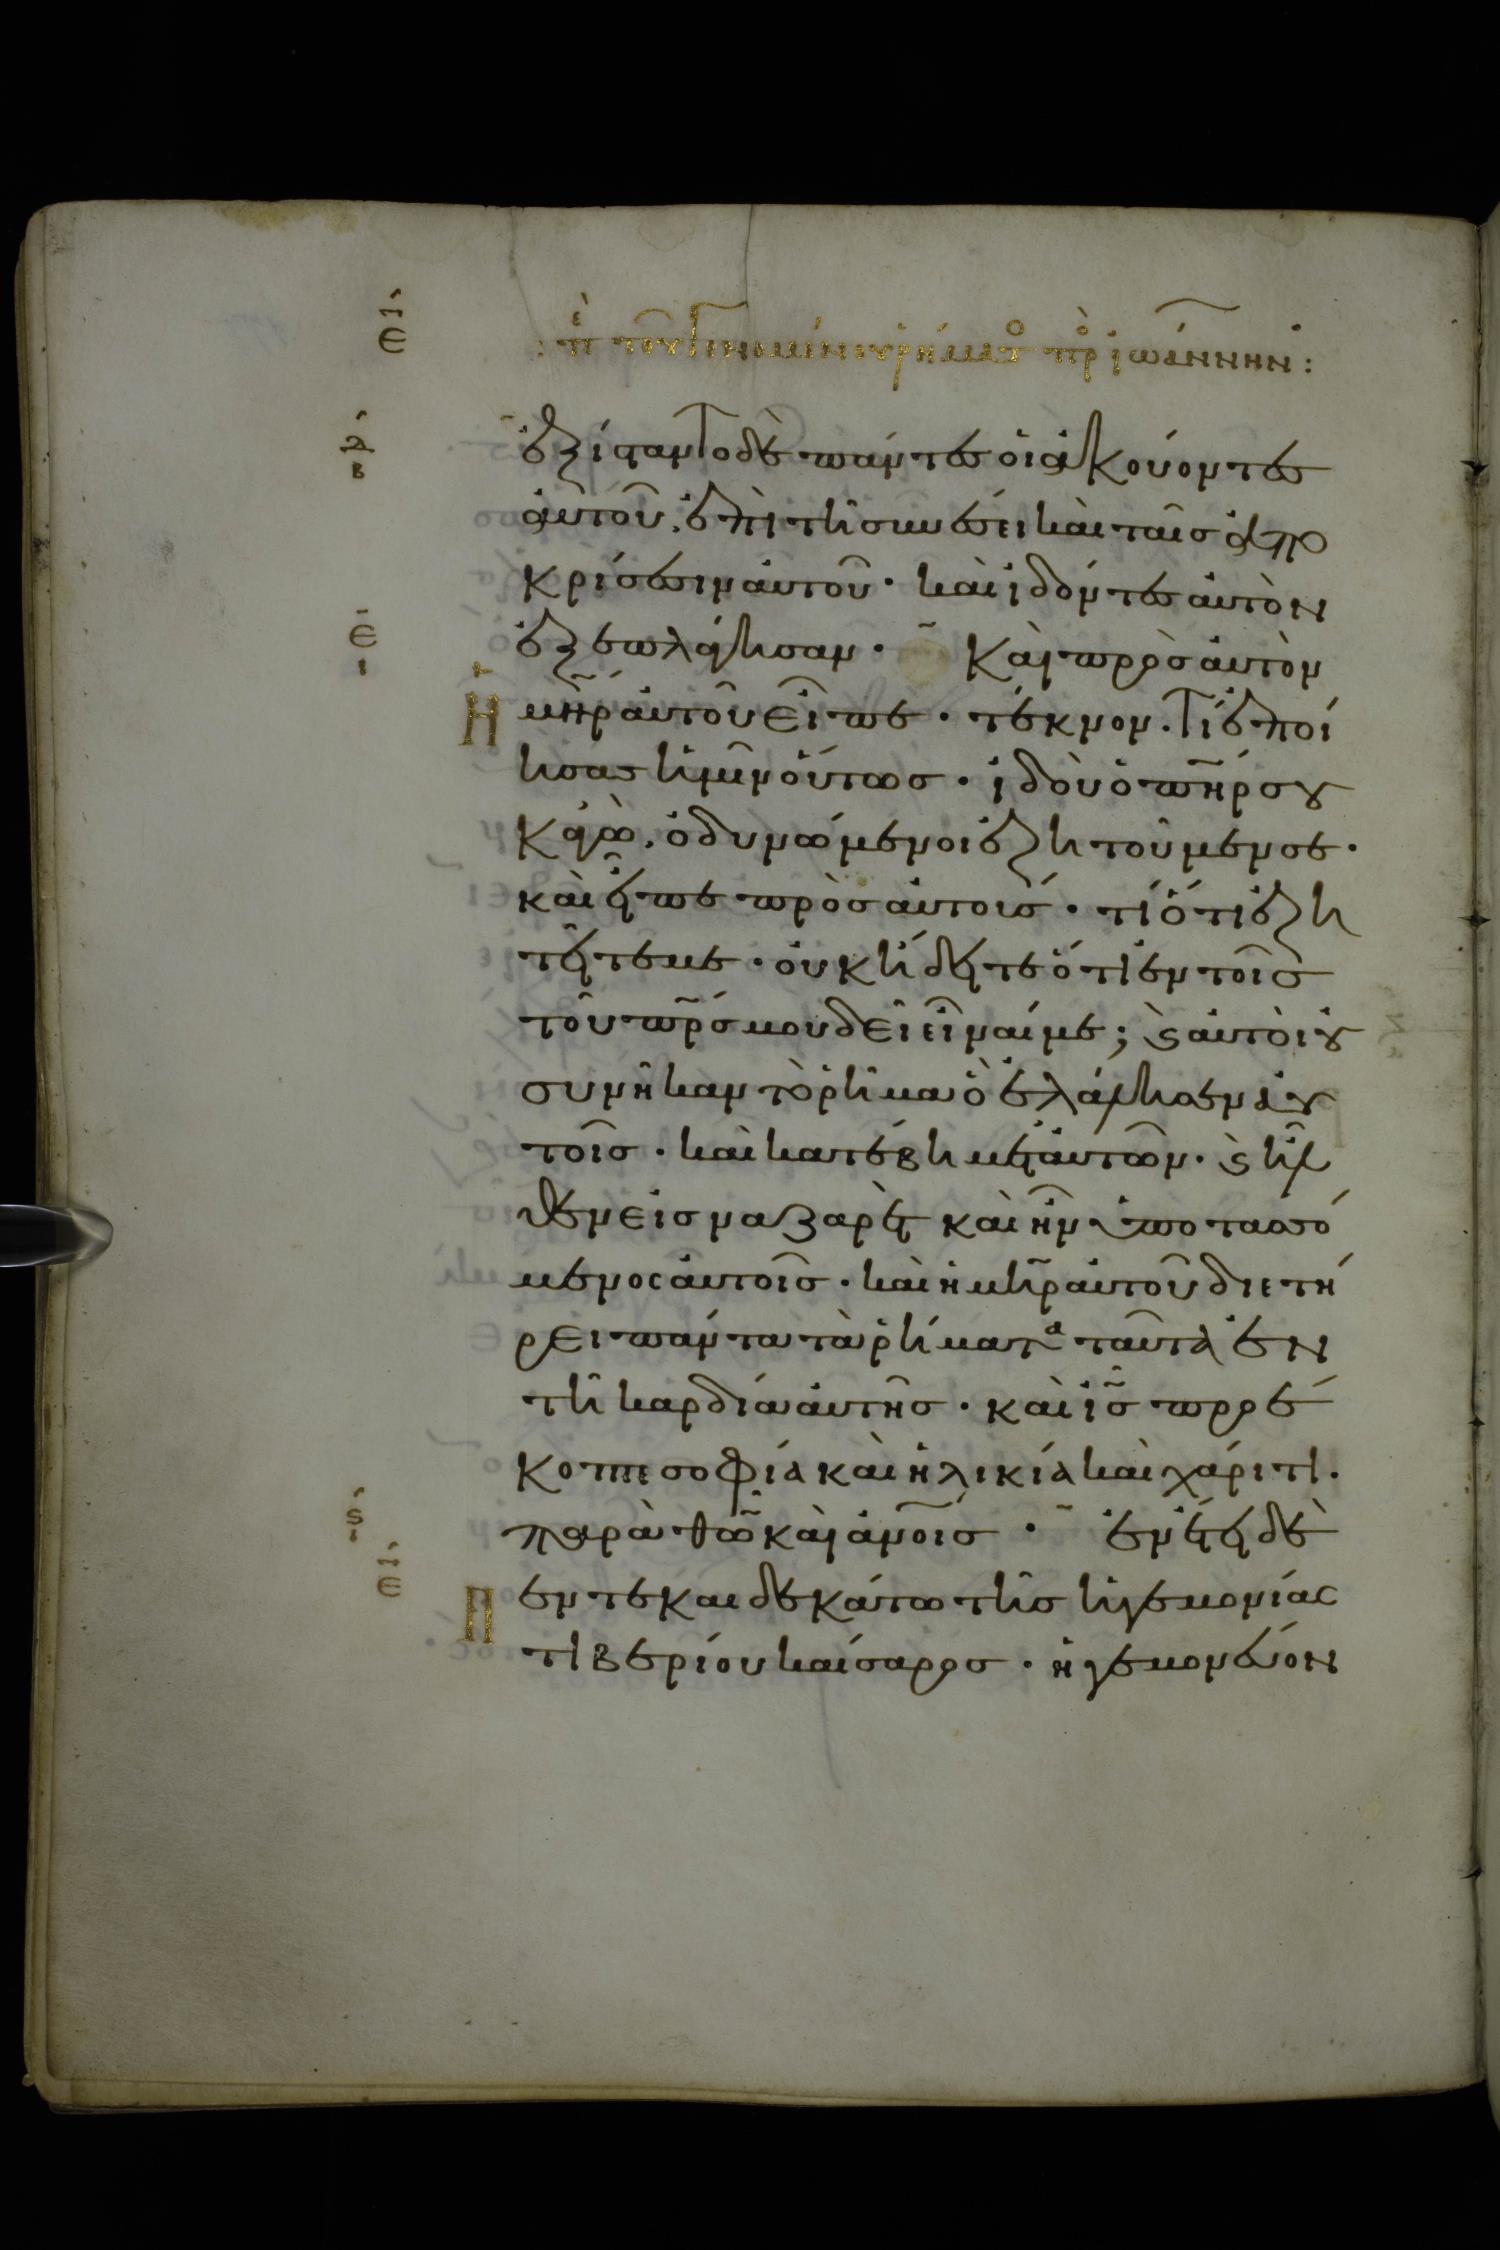 ιε
: πε τοῦ γενομένου ῥήματο πρὸ ἰωάννην :
δ
β
ἐξίσταντο δὲ πάντες οἱ ἀκούοντες
αὐτοῦ, ἐπὶ τῆ συνέσει καὶ ταῖς ἀπο
κρίσεσιν αὐτοῦ · καὶ ἰδόντες αὐτὸν
ε
ι
ἐξεπλάγησαν · Καὶ πρὸς αὐτὸν
Ἡ μηρ αὐτοῦ εἶπε · τέκνον · Τί ἐποί
ησας ἡμῖν οὕτως · ἰδοὺ ὁ πηρ σου
κἀγὼ, ὀδυνώμενοι ἐζητοῦμέν σε ·
καὶ εἶπε πρὸς αὐτούς · τί ὅτι ἐζη
τεῖτέ με · οὐκ ἤδειτε ὅτι ἐν τοῖς
τοῦ πρσ μου δεῖ εἶναί με ; ϛ αὐτοὶ οὐ
συνῆκαν τὸ ῥῆμα ὃ ἐλάλησεν αὐ
τοῖς · καὶ κατέβη μετ' αὐτῶν · ϛ ἦλ
θεν εἰς ναζαρὲτ καὶ ἦν ὑποτασσό
μενος αὐτοῖς · καὶ ἡ μηρ αὐτοῦ διετή
ρει πάντα τὰ ῥήματα ταῦτα ἐν
τῆ καρδία αὐτῆς · καὶ ισ προέ
κοπτε σοφία καὶ ἡλικία καὶ χάριτι ·
ϛ
ι
παρὰ θω καὶ ἀνοις · ἐν ἔτει δὲ
ιε
Π εντεκαιδεκάτω τῆς ἡγεμονίας
τιβερίου καίσαρος · ἡγεμονεύον